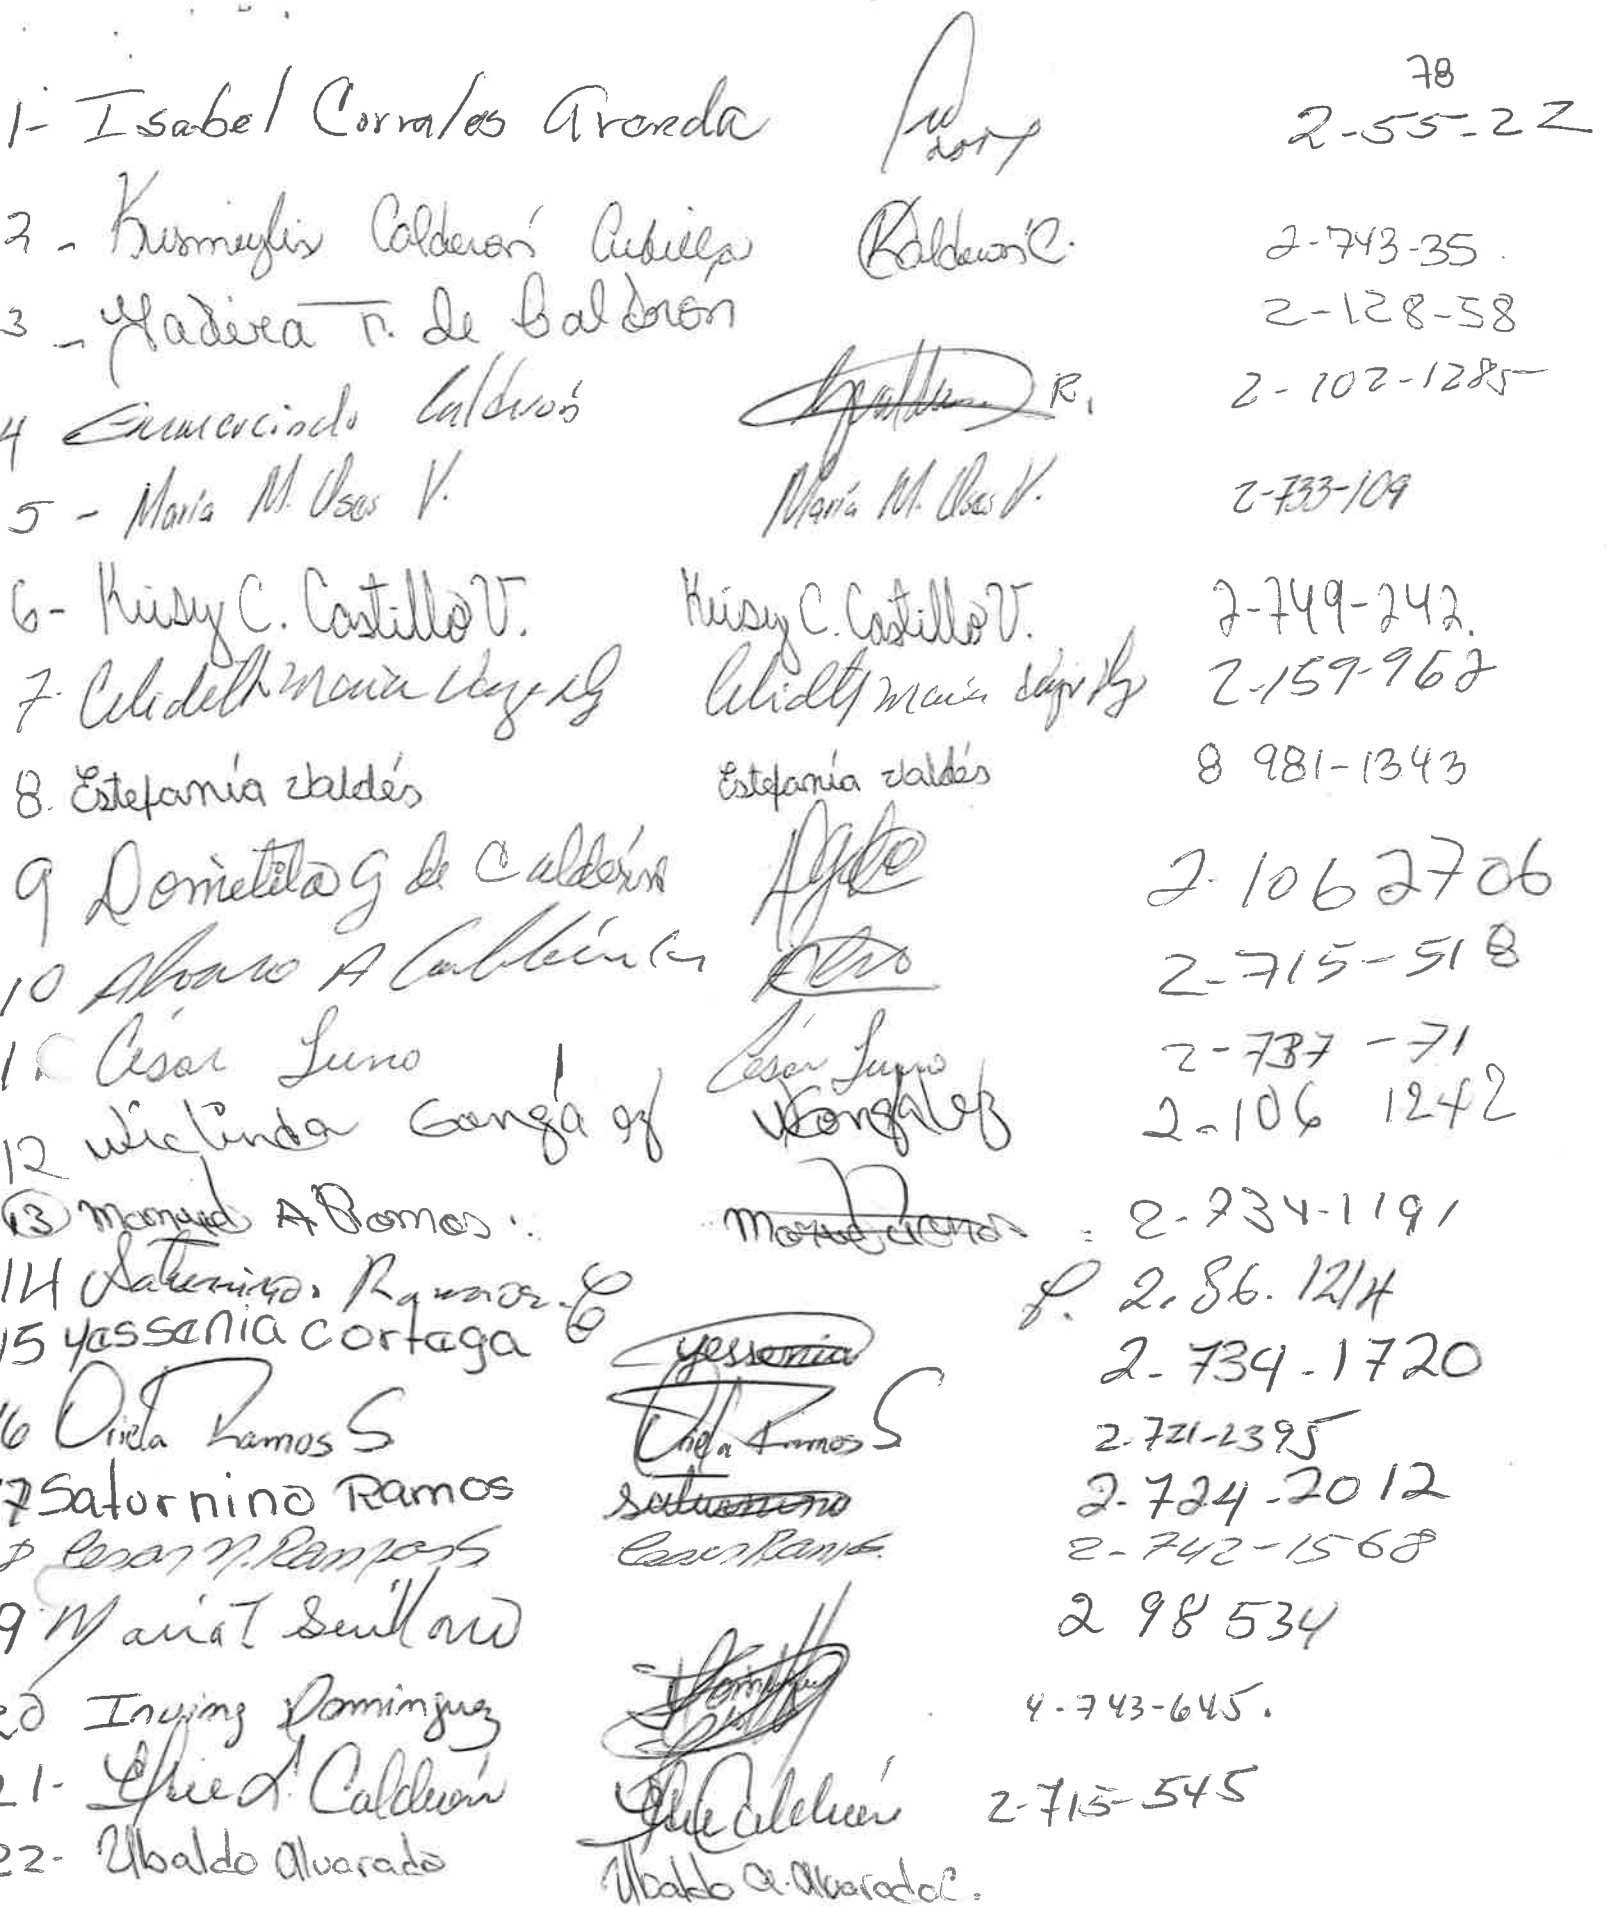 78
1- Isabel Corrales Aranda 2-55-22
2- Kusmeylis Calderón Cubilla KCalderón C. 2-743-35
3- Yadira T. de Calderón 2-128-58
4 Gumercindo Calderón R. 2-102-1285
5- María M. Usas V. María M. Usas V. 2-733-109
6- Keisy C. Castillo V. Keisy C. Castillo V. 2-749-242.
7. Celideth María María 2-159-962
8. Estefanía Valdés Estefanía Valdés 8 981-1343
9 Dometila G de Calderón 2-106 2706
10 Alvaro A 2-715-518
11 César Luno César Luno 2-737-71
12 Wiclinda González WGonzález 2-106 1242
13 Manuel A Ramos. 2-734-1191
14 Saturnino. Ramos. 2.86.1214
15 Yassenia Cortaga Yessenia 2-734-1720
16 Oriela Ramos S Oriela Ramos S 2-721-2395
17 Saturnino Ramos Saturnino 2-724-2012
8 Cesar N. Ramos S Cesar Ramos. 2-742-1568
9 Maria T 2 98 534
20 Irving Dominguez 4-743-645.
21- Calderón Calderón 2-715-545
22- Ubaldo Alvarado Ubaldo A. Alvarado C.